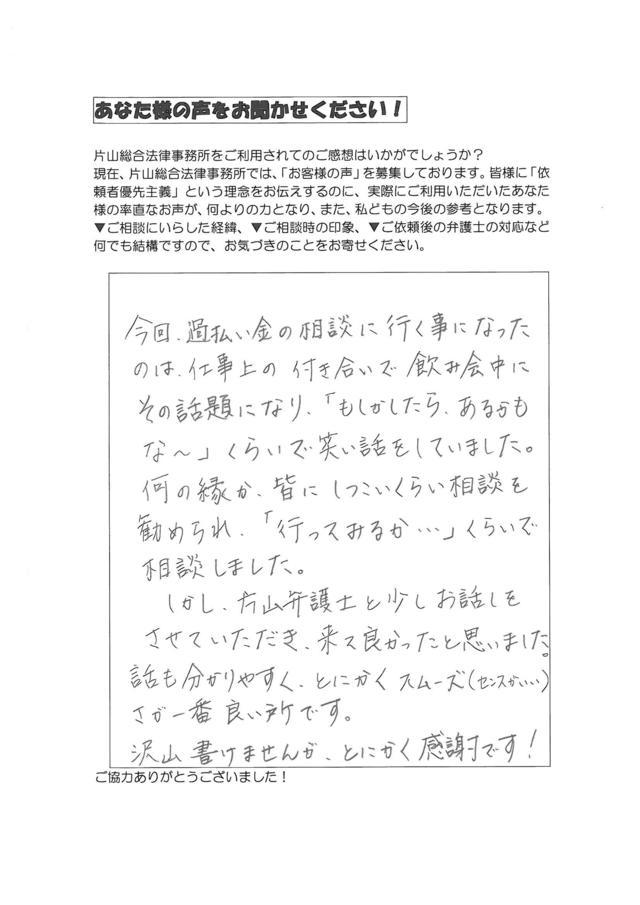 あなた様の声をお聞かせください！
片山総合法律事務所をご利用されてのご感想はいかがでしょうか？
現在、片山総合法律事務所では、「お客様の声」を募集しております。皆様に「依
頼者優先主義」という理念をお伝えするのに、実際にご利用いただいたあなた
様の率直なお声が、何よりの力となり、また、私どもの今後の参考となります。
▼ご相談にいらした経緯、▼ご相談時の印象、▼ご依頼後の弁護士の対応など
何でも結構ですので、お気づきのことをお寄せください。
今回、過払い金の相談に行く事になった
のは、仕事上の付き合いで飲み会中に
その話題になり、「もしかしたら、あるかも
な～」くらいで笑い話をしていました。
何の縁か、皆にしつこいくらい相談を
勧められ、「行ってみるか…」くらいで
相談しました。
しかし、片山弁護士と少しお話しを
させていただき、来て良かったと思いました。
話も分かりやすく、とにかくスムーズ(センスがいい)
さが一番良い所です。
沢山書けませんが、とにかく感謝です！
ご協力ありがとうございました！